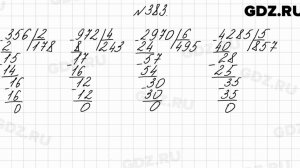 GDZ.RU
№383
-356|2 -972|4 -2970|6 -4285|5
2 |178 8 |243 24 |495 40 |857
-15 -17 -57 -28
14 16 54 25
-16 -12 -30 -35
16 12 30 35
0 0 0 0
GDZ.RU